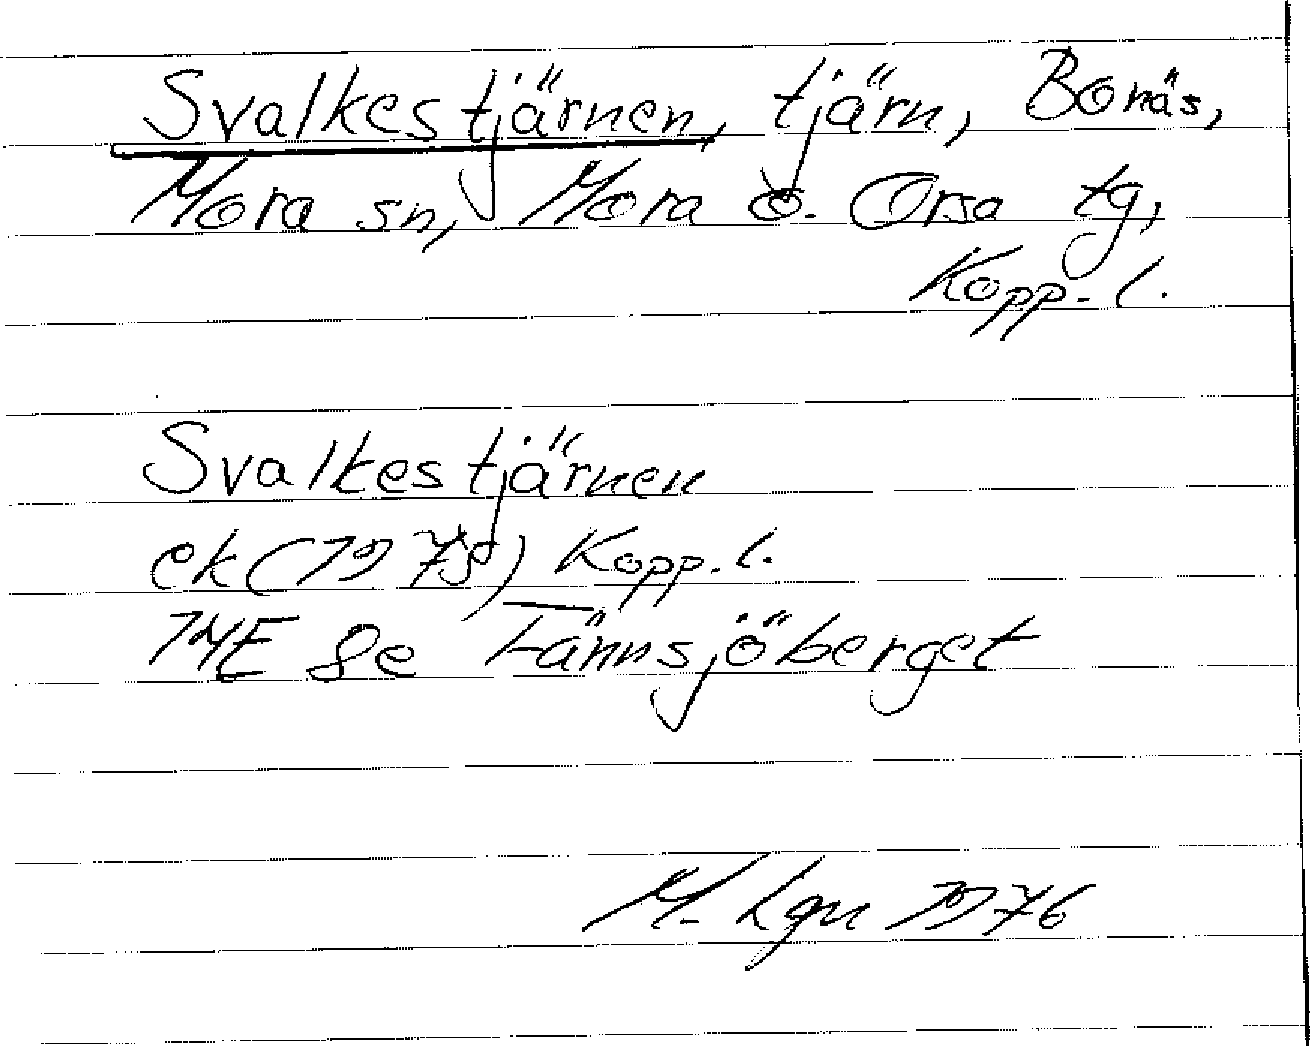 Svalkestjärnen, tjärn, Bonäs,
Mora sn, Mora o. Orsa tg,
Kopp. l.
Svalkestjärnen
ek (1975) Kopp. l.
14E 8e Fännsjöberget
M. Lgn 1976